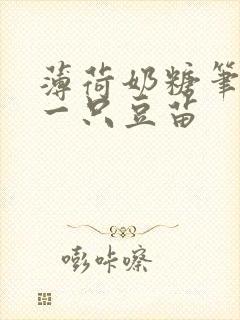 薄荷奶糖笔
一只豆苗
嘭咔嚓